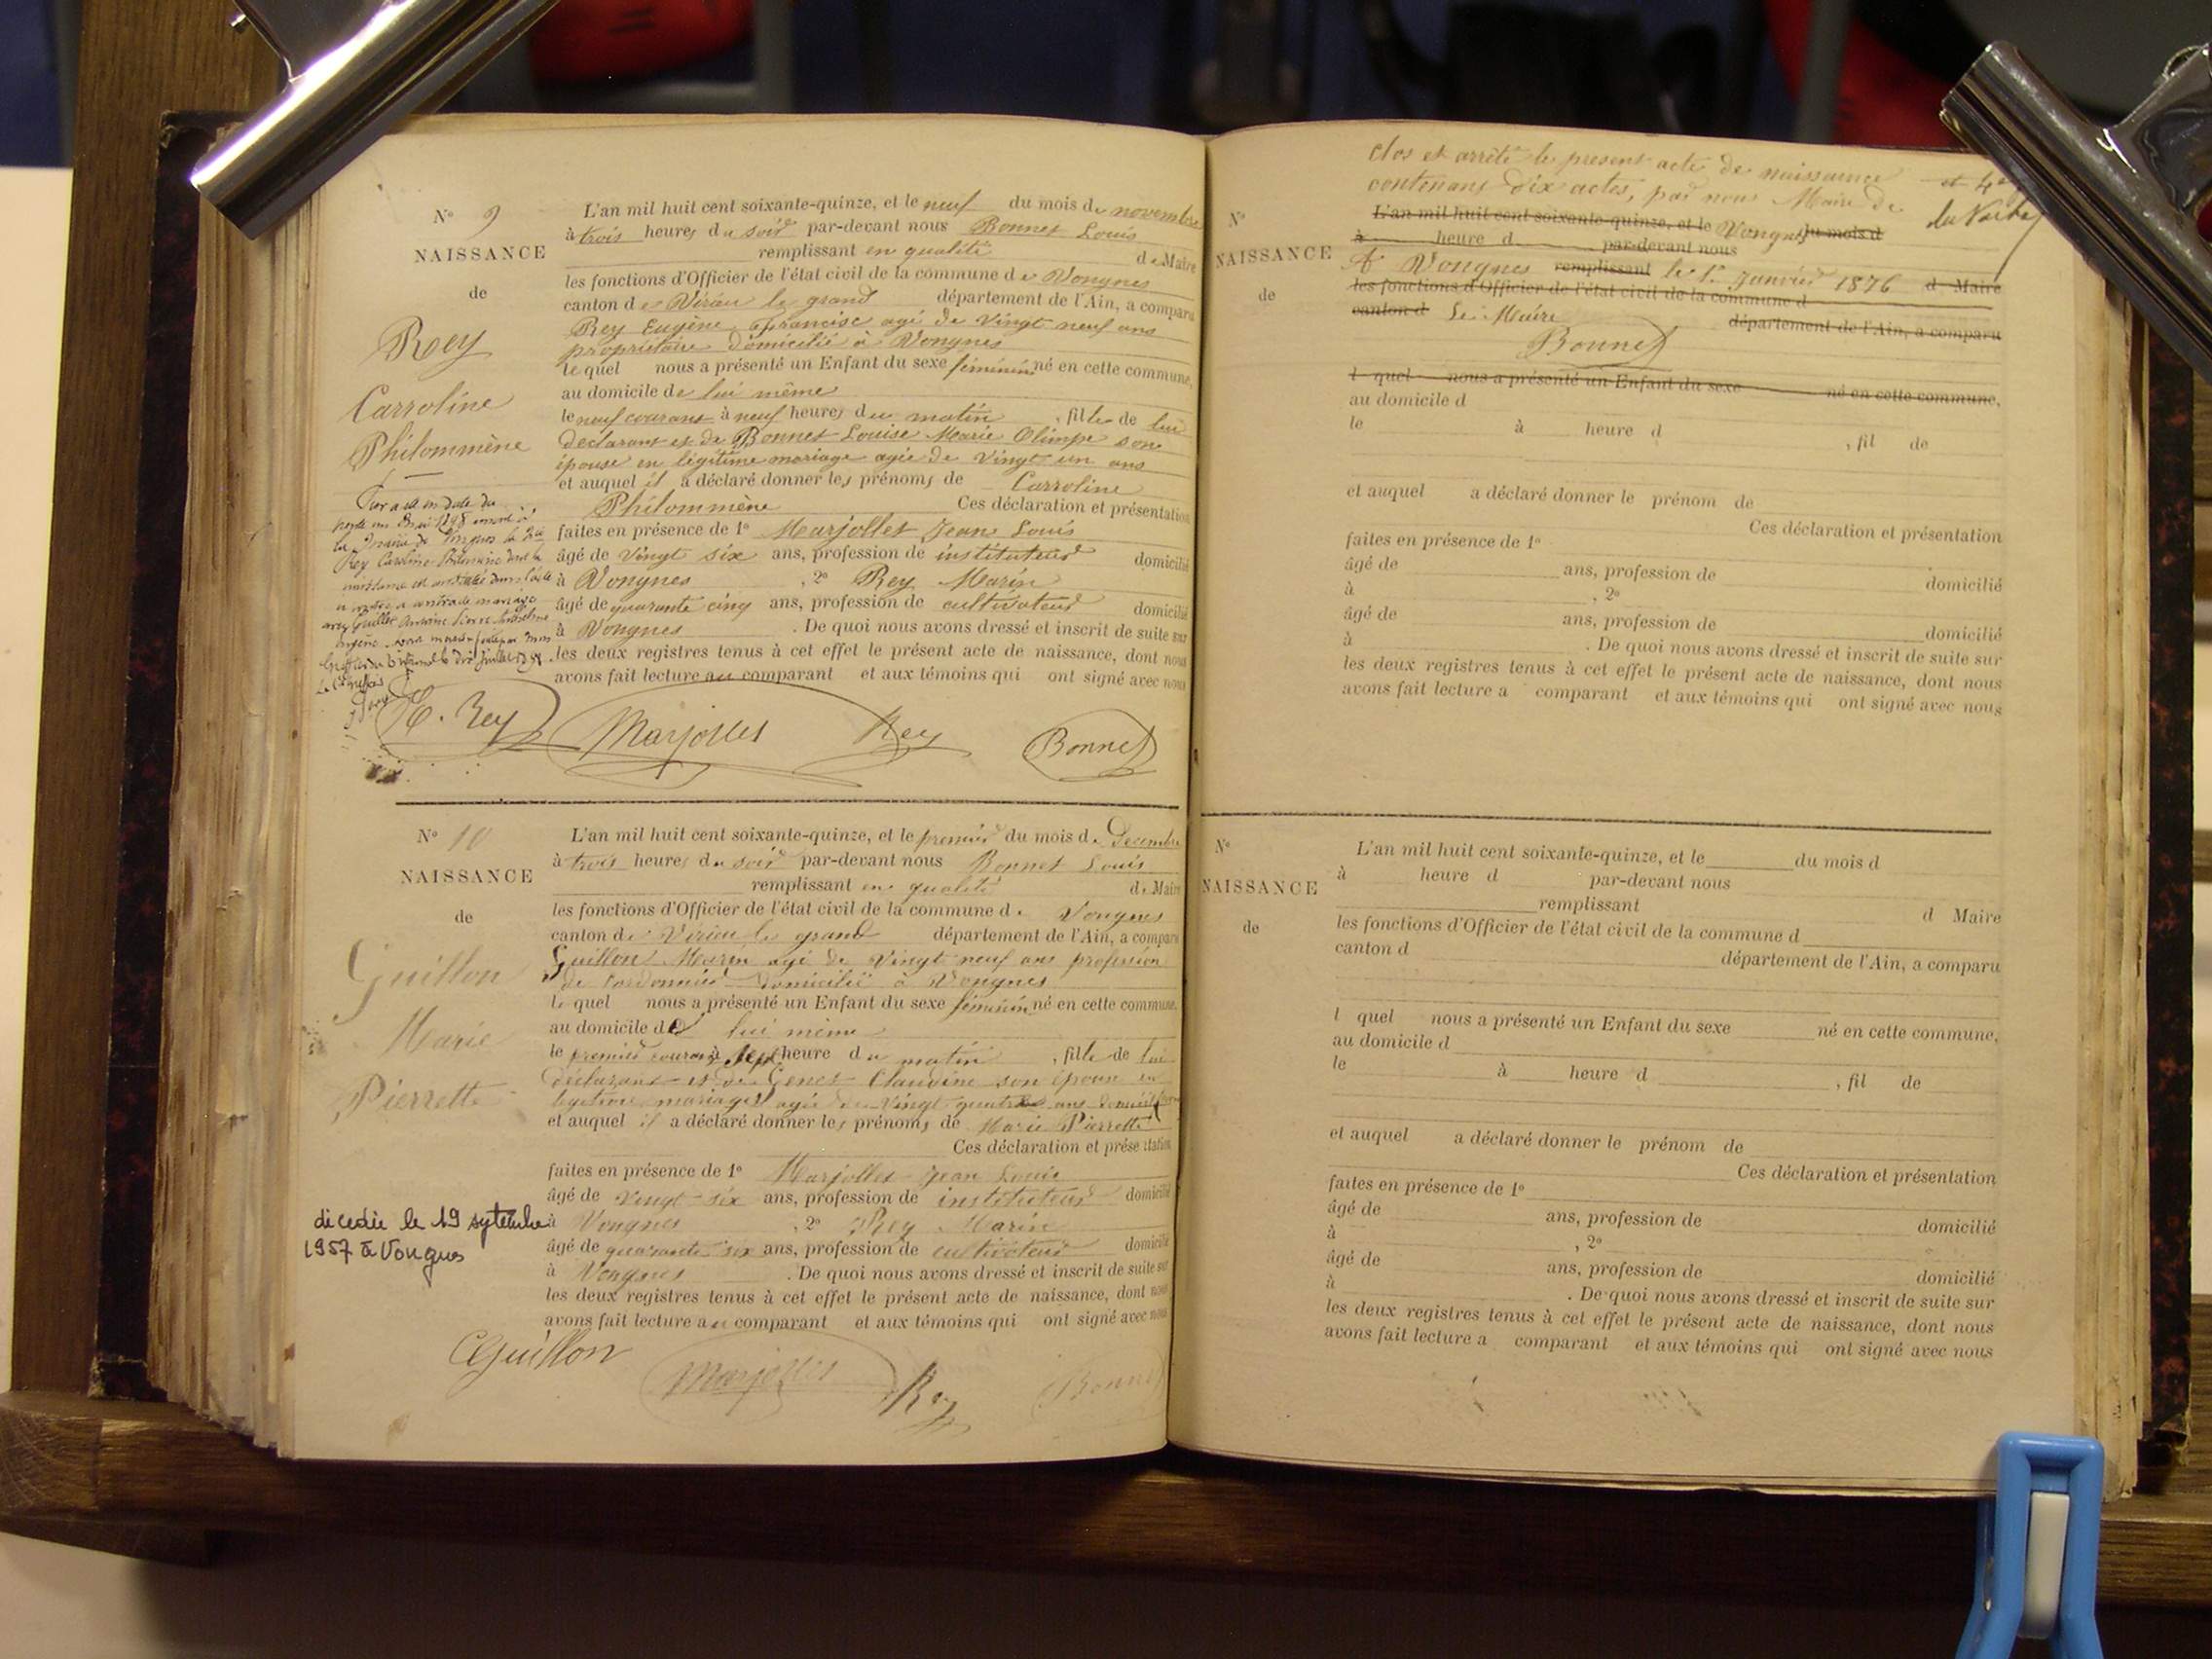 N° 9
NAISSANCE
de
Rey
Carroline
Philommène
L'an mil huit cent soixante-quinze, et le neuf du mois de novembre
à trois heures du soir par-devant nous Bonnet Louis
remplissant en qualité de Maire
les fonctions d'Officier de l'état civil de la commune de Vongnes
canton de Virieu le grand département de l'Ain, a comparu
Rey Eugène Francisc agé de Vingt neuf ans
propriétaire domicilié à Vongnes
lequel nous a présenté un Enfant du sexe féminin né en cette commune,
au domicile de lui même
le neuf courant à neuf heures du matin, fille de lui
déclarant et de Bonnet Louise Marie Olimpe son
épouse en légitime mariage agée de Vingt un ans
et auquel il a déclaré donner les prénoms de Carroline
Philommène Ces déclaration et présentation
faites en présence de 1° Marjollet Jean Louis
âgé de vingt six ans, profession de instituteur domicilié
à Vongnes, 2° Rey Marin
âgé de quarante cinq ans, profession de cultivateur domicilié
à Vongnes. De quoi nous avons dressé et inscrit de suite sur
les deux registres tenus à cet effet le présent acte de naissance, dont nous
avons fait lecture au comparant et aux témoins qui ont signé avec nous
Par acte en date du
la Mairie de Vongnes la dite
Rey Caroline Philomène dont la
naissance est constatée dans l'acte
ci contre a contracté mariage
avec Guillot Antoine Pierre Anthelme
Eugène
E. Rey Marjollet Rey Bonnet
N° 10
NAISSANCE
de
Guillon
Marie
Pierrette
L'an mil huit cent soixante-quinze, et le premier du mois de Decembre
à trois heures du soir par-devant nous Bonnet Louis
remplissant en qualité de Maire
les fonctions d'Officier de l'état civil de la commune de Vongnes
canton de Virieu le grand département de l'Ain, a comparu
Guillon Marin agé de Vingt neuf ans profession
de Cordonnier domicilié à Vongnes
lequel nous a présenté un Enfant du sexe féminin né en cette commune.
au domicile de lui même
le premier courant à sept heure du matin, fille de lui
déclarant et de Genet Claudine son épouse en
légitime mariage agée de Vingt quatre ans
et auquel il a déclaré donner les prénoms de Marie Pierrette
Ces déclaration et présentation
faites en présence de 1° Marjollet Jean Louis
âgé de vingt six ans, profession de instituteur domicilié
à Vongnes, 2° Rey Marin
âgé de quarante six ans, profession de cultivateur domicilié
à Vongnes. De quoi nous avons dressé et inscrit de suite sur
les deux registres tenus à cet effet le présent acte de naissance, dont nous
avons fait lecture au comparant et aux témoins qui ont signé avec nous
décedée le 19 septembre
1957 à Vongnes
Guillon Marjollet Rey Bonnet
clos et arrêté le present acte de naissance
contenant dix actes, par nous Maire de
N°
NAISSANCE
de
L'an mil huit cent soixante-quinze, et le Vongnes du mois d
à heure d par-devant nous
A Vongnes remplissant le 1er Janvier 1876 d Maire
les fonctions d'Officier de l'état civil de la commune d
canton d Le Maire département de l'Ain, a comparu
Bonnet
l quel nous a présenté un Enfant du sexe né en cette commune,
au domicile d
le à heure d , fil de
et auquel a déclaré donner le prénom de
Ces déclaration et présentation
faites en présence de 1°
âgé de ans, profession de domicilié
à , 2°
âgé de ans, profession de domicilié
à . De quoi nous avons dressé et inscrit de suite sur
les deux registres tenus à cet effet le présent acte de naissance, dont nous
avons fait lecture a comparant et aux témoins qui ont signé avec nous
N°
NAISSANCE
de
L'an mil huit cent soixante-quinze, et le du mois d
à heure d par-devant nous
remplissant d Maire
les fonctions d'Officier de l'état civil de la commune d
canton d département de l'Ain, a comparu
l quel nous a présenté un Enfant du sexe né en cette commune,
au domicile d
le à heure d , fil de
et auquel a déclaré donner le prénom de
Ces déclaration et présentation
faites en présence de 1°
âgé de ans, profession de domicilié
à , 2°
âgé de ans, profession de domicilié
à . De quoi nous avons dressé et inscrit de suite sur
les deux registres tenus à cet effet le présent acte de naissance, dont nous
avons fait lecture a comparant et aux témoins qui ont signé avec nous